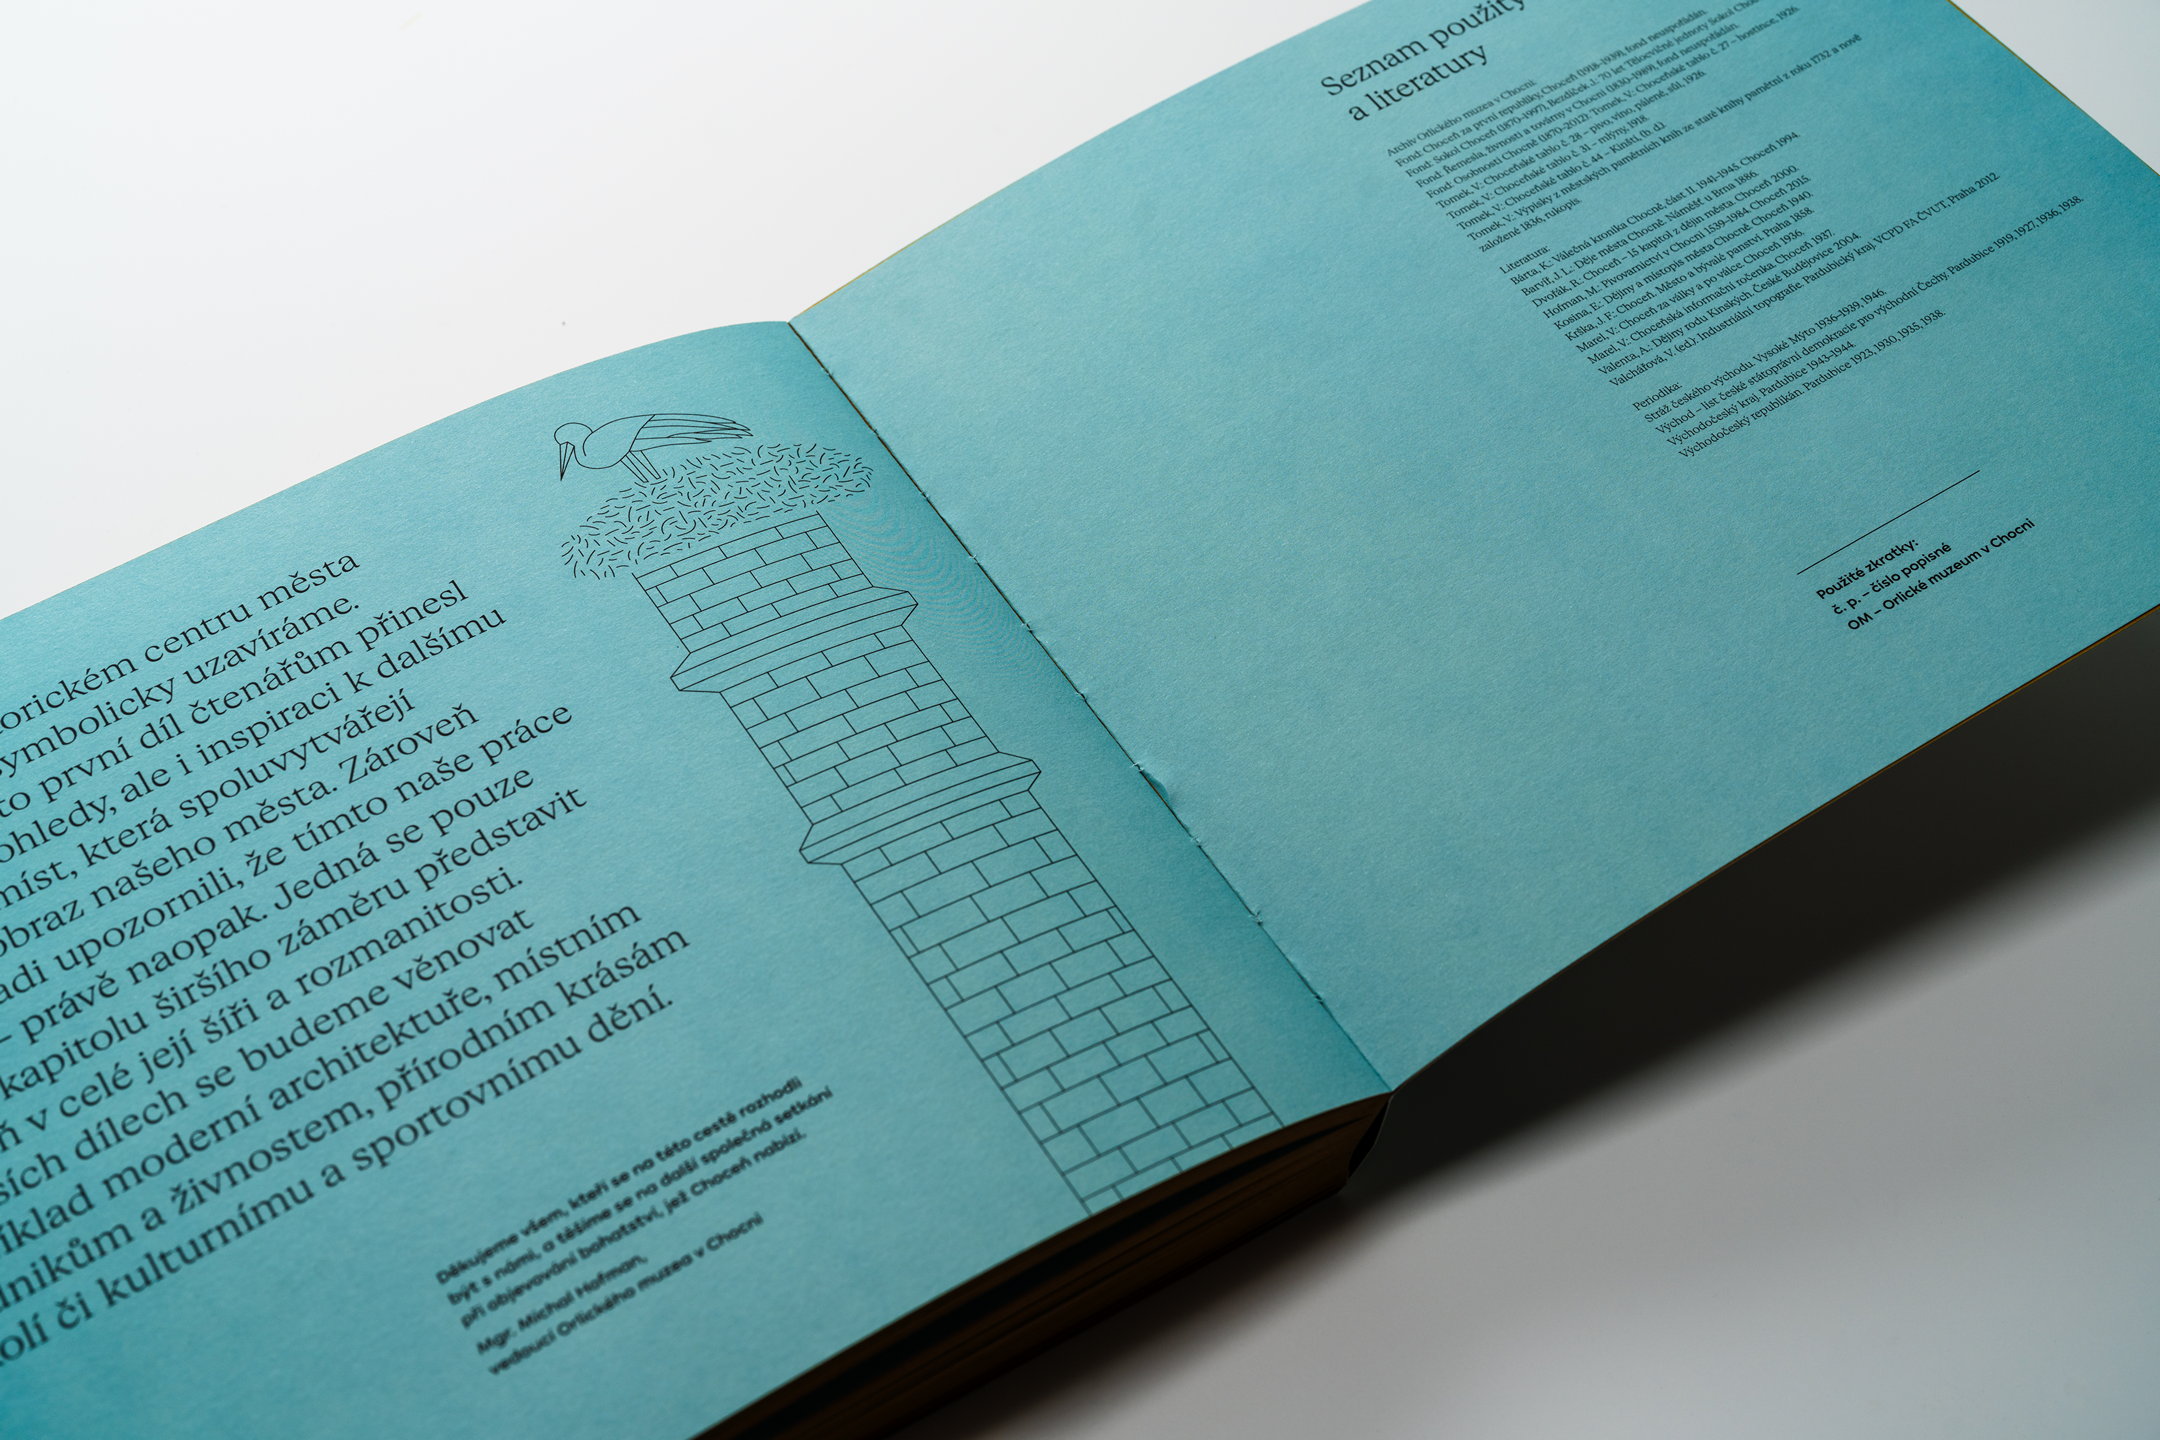 orickém centru města
symbolicky uzavíráme.
to první díl čtenářům přinesl
ohledy, ale i inspiraci k dalšímu
míst, která spoluvytvářejí
obraz našeho města. Zároveň
adi upozornili, že tímto naše práce
– právě naopak. Jedná se pouze
kapitolu širšího záměru představit
ň v celé její šíři a rozmanitosti.
ších dílech se budeme věnovat
íklad moderní architektuře, místním
lnikům a živnostem, přírodním krásám
olí či kulturnímu a sportovnímu dění.
Děkujeme všem, kteří se na této cestě rozhodli
být s námi, a těšíme se na další společná setkání
při objevování bohatství, jež Choceň nabízí.
Mgr. Michal Hofman,
vedoucí Orlického muzea v Chocni
Seznam použitý
a literatury
Archiv Orlického muzea v Chocni:
Fond: Choceň za první republiky, Choceň (1918-1939), fond neuspořádán.
Fond: Sokol Choceň (1870-1997), Bezdíček J.: 70 let Tělocvičné jednoty Sokol Choc
Fond: Řemesla, živnosti a továrny v Chocni (1830-1989), fond neuspořádán.
Fond: Osobnosti Chocně (1870-2012). Tomek, V.: Choceňské tablo č. 27 – hostince, 1926.
Tomek, V.: Choceňské tablo č. 28 – pivo, víno, pálené, sůl, 1926.
Tomek, V.: Choceňské tablo č. 31 – mlýny, 1918.
Tomek, V.: Choceňské tablo č. 44 – Kinští, (b. d.).
Tomek, V.: Výpisky z městských pamětních knih ze staré knihy pamětní z roku 1732 a nově
založené 1836, rukopis.
Literatura:
Bárta, K.: Válečná kronika Chocně, část II. 1941-1945. Choceň 1994.
Barvíř, J. L.: Děje města Chocně. Náměšť u Brna 1886.
Dvořák, R.: Choceň – 15 kapitol z dějin města Choceň 2000.
Hofman, M.: Pivovarnictví v Chocni 1539-1984. Choceň 2015.
Kosina, E.: Dějiny a místopis města Chocně. Choceň 1940.
Krška, J. F.: Choceň. Město a bývalé panství. Praha 1858.
Marel, V.: Choceň za války a po válce. Choceň 1936.
Marel, V.: Choceňská informační ročenka. Choceň 1937.
Valenta, A.: Dějiny rodu Kinských. České Budějovice 2004.
Valchářová, V. (ed.): Industriální topografie. Pardubický kraj. VCPD FA ČVUT, Praha 2012.
Periodika:
Stráž českého východu. Vysoké Mýto 1936-1939, 1946.
Východ – list české státoprávní demokracie pro východní Čechy. Pardubice 1919, 1927, 1936, 1938.
Východočeský kraj. Pardubice 1943-1944.
Východočeský republikán. Pardubice 1923, 1930, 1935, 1938.
Použité zkratky:
č. p. – číslo popisné
OM – Orlické muzeum v Chocni